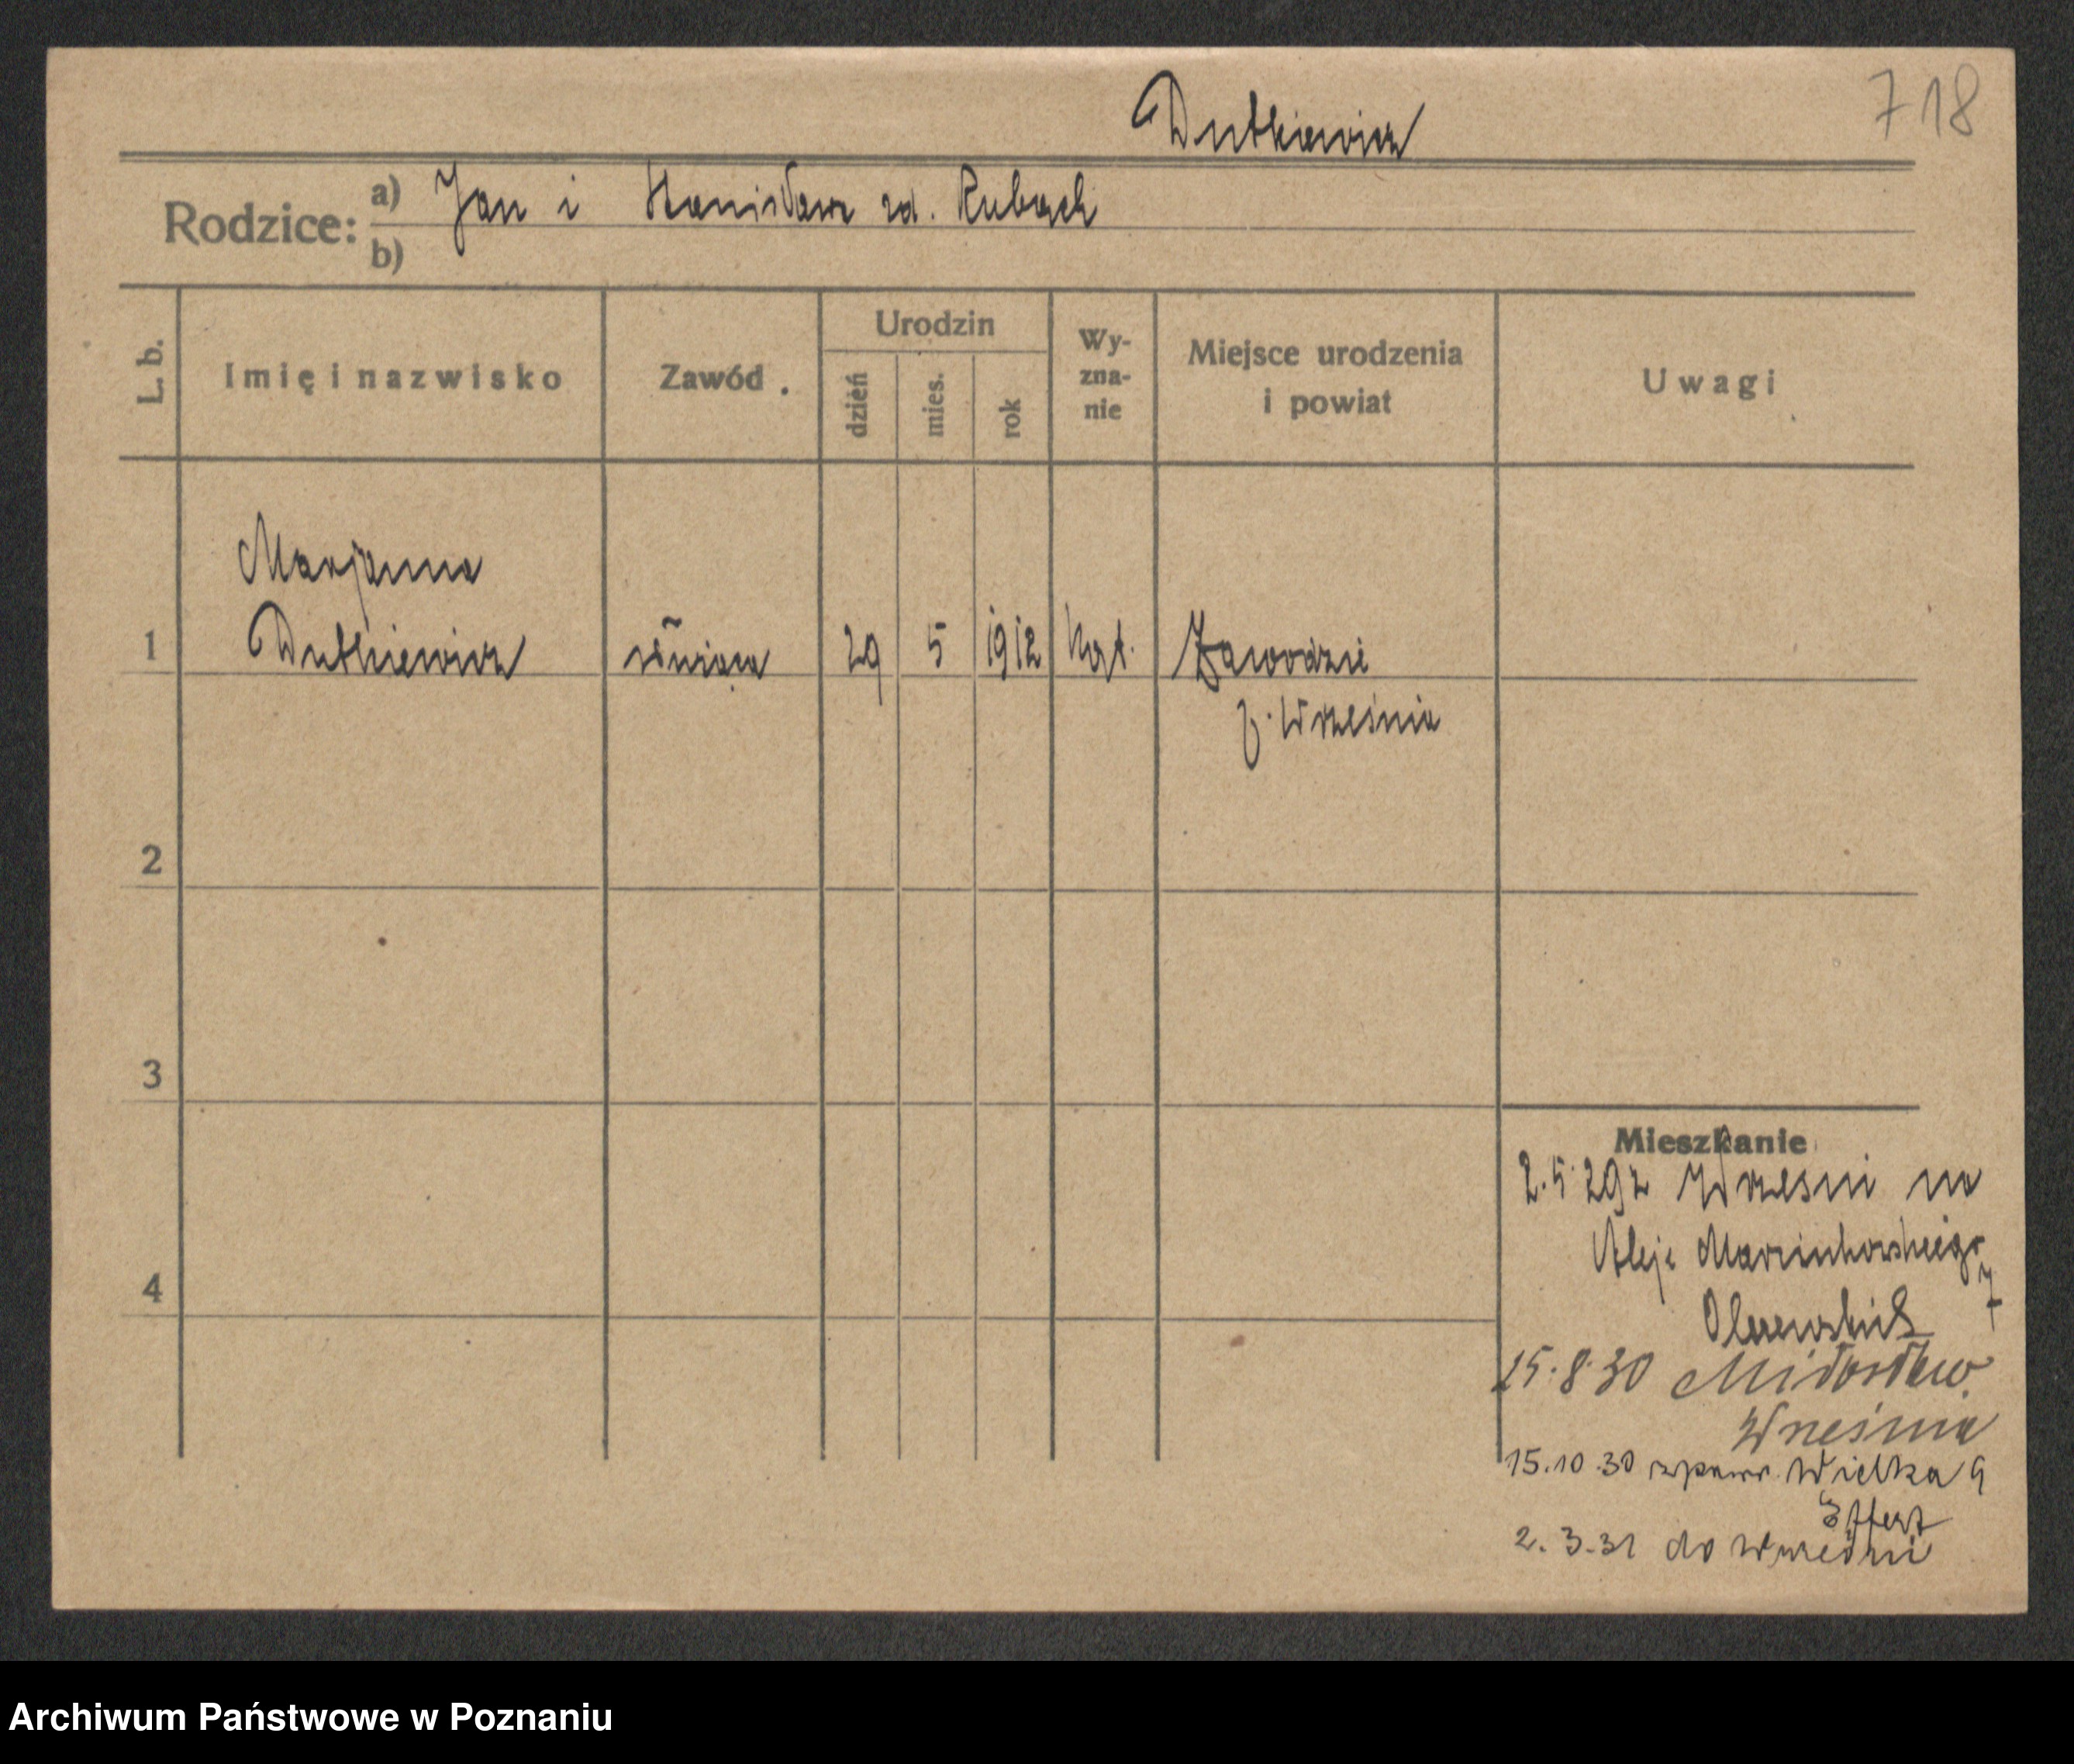 718
Dutkiewicz
Rodzice: a) Jan i Stanisława zd. Rubach
b)
L. b.
Imię i nazwisko
Zawód
Urodzin
dzień
mies.
rok
Wy-
zna-
nie
Miejsce urodzenia
i powiat
Uwagi
Marjanna
1 Dutkiewicz 29 5 1912 kat. Zawodzie
p. Września
2
3
4
Mieszkanie
2.5.29 z Wrześni na
Aleje Marcinkowskiego
7
15.8.30 Miłosław
Września
15.10.30 Wielka 9
2.3.31 do Wrześni
Archiwum Państwowe w Poznaniu